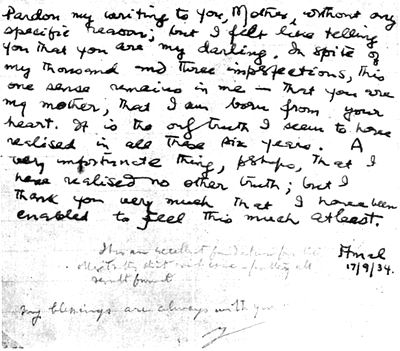 Pardon my writing to you, Mother, without any
specific reason; but I felt like telling
you that you are my darling. In spite of
my thousand and three imperfections, this
one sense remains in me — that you are
my mother, that I am born from your
heart. It is the only truth I seem to have
realised in all these six years. A
very unfortunate thing, perhaps, that I
have realised no other truth; but I
thank you very much that I have been
enabled to feel this much at least.
Amal
17/9/34.
It is an excellent foundation for the
other truths that
result from it
My blessings are always with you